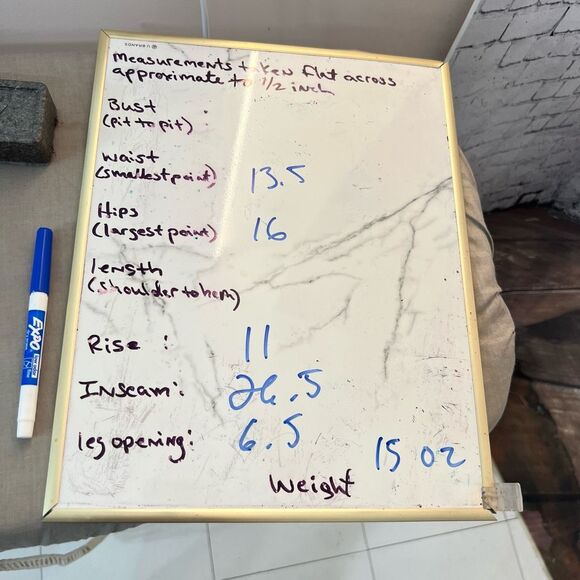 U BRANDS
Measurements taken flat across
approximate to 1/2 inch
Bust :
(pit to pit)
Waist
(smallest point) 13.5
Hips
(largest point) 16
length
(shoulder to hem)
Rise : 11
Inseam: 26.5
leg opening: 6.5
15 oz
Weight
EXPO